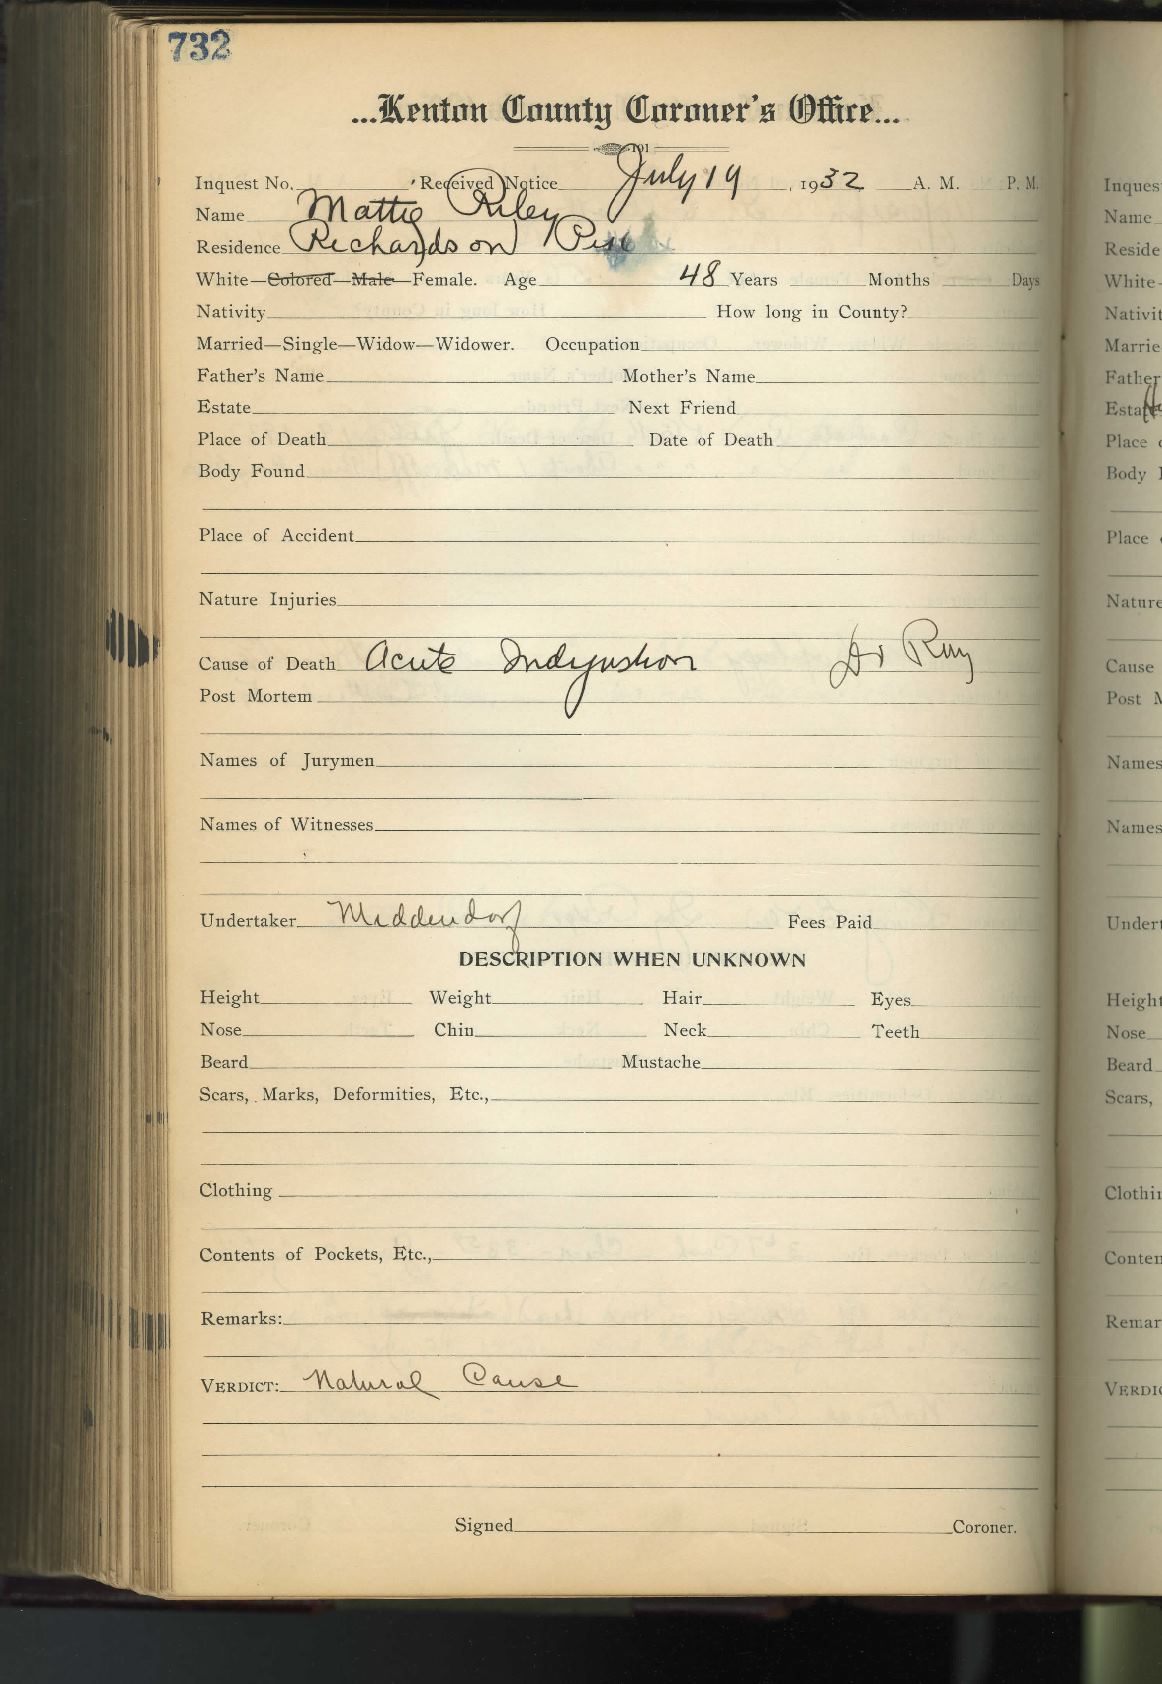 732
...Kenton County Coroner's Office...
101
Inquest No. Received Notice July 19, 1932 A. M. P. M.
Name Mattie Riley
Residence Richardson Pike
White—Colored—Male—Female. Age 48 Years Months Days
Nativity How long in County?
Married—Single—Widow—Widower. Occupation
Father's Name Mother's Name
Estate Next Friend
Place of Death Date of Death
Body Found
Place of Accident
Nature Injuries
Cause of Death Acute Indigestion Dr
Post Mortem
Names of Jurymen
Names of Witnesses
Undertaker Middendorf Fees Paid
DESCRIPTION WHEN UNKNOWN
Height Weight Hair Eyes
Nose Chin Neck Teeth
Beard Mustache
Scars, Marks, Deformities, Etc.,
Clothing
Contents of Pockets, Etc.,
Remarks:
VERDICT: Natural Cause
Signed Coroner.
Inques
Name
Reside
White-
Nativit
Marrie
Father
Estat
Place
Body
Place
Nature
Cause
Post M
Names
Names
Undert
Height
Nose
Beard
Scars,
Clothi
Conten
Remar
VERDI